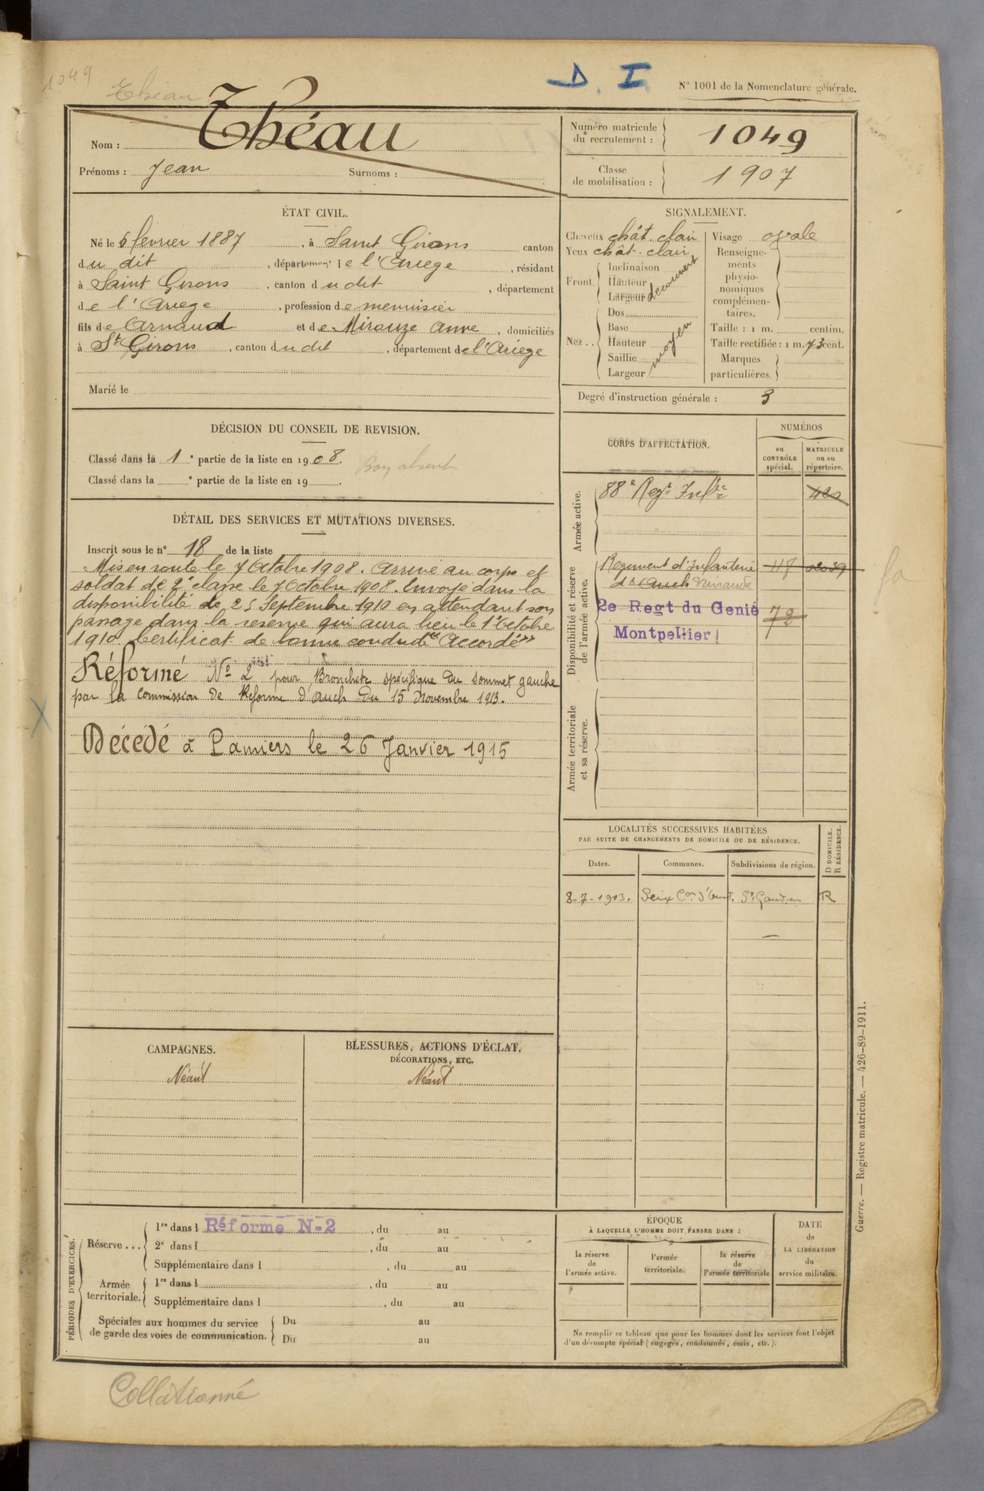 1049
Théau
D. I
N° 1001 de la Nomenclature générale.
Nom : Théau
Prénoms : Jean Surnoms :
Numéro matricule du recrutement : 1049
Classe de mobilisation : 1907
ÉTAT CIVIL.
Né le 6 février 1887, à Saint Girons canton
du dit, département de l'Ariege, résidant
à Saint Girons, canton du dit, département
de l'Ariege, profession de menuisier
fils de Arnaud et de Mirouze Anne, domiciliés
à St Girons, canton du dit, département de l'Ariege
Marié le
SIGNALEMENT.
Cheveux chât. clair
Yeux chât. clair
Front Inclinaison
Hauteur
Largeur
découvert
Nez .. Dos
Base
Hauteur
Saillie
Largeur
moyen
Visage ovale
Renseignements physionomiques complémentaires.
Taille : 1 m. centim.
Taille rectifiée : 1 m. 73 cent.
Marques particulières.
Degré d'instruction générale : 3
DÉCISION DU CONSEIL DE REVISION.
Classé dans la 1e partie de la liste en 1908. Bon absent
Classé dans la e partie de la liste en 19 .
DÉTAIL DES SERVICES ET MUTATIONS DIVERSES.
Inscrit sous le n° 18 de la liste
Mis en route le 7 Octobre 1908. Arrivé au corps et
soldat de 2e classe le 7 Octobre 1908. Envoyé dans la
disponibilité le 25 Septembre 1910 en attendant son
passage dans la reserve qui aura lieu le 1er Octobre
1910. Certificat de bonne conduite "Accordé"
Réformé N° 2 pour Bronchite spécifique du sommet gauche
par la Commission de Réforme d'Auch du 15 Novembre 1913.
Décédé à Pamiers le 26 Janvier 1915
CORPS D'AFFECTATION.
NUMÉROS
au CONTRÔLE spécial.
MATRICULE ou au répertoire.
Armée active.
88e Regt Infie
Disponibilité et réserve de l'armée active.
Regiment d'Infanterie
d'Auch Mirande
2e Regt du Genie
Montpellier
Armée territoriale et sa réserve.
LOCALITÉS SUCCESSIVES HABITÉES
PAR SUITE DE CHANGEMENTS DE DOMICILE OU DE RÉSIDENCE.
D DOMICILE. R RÉSIDENCE.
Dates. Communes. Subdivisions de région.
8-7-1913. Seix Con d'Oust. St Gaudens R
CAMPAGNES.
Néant
BLESSURES, ACTIONS D'ÉCLAT, DÉCORATIONS, ETC.
Néant
PÉRIODES D'EXERCICES.
Réserve ... 1re dans l Réforme N=2, du au
2e dans l , du au
Supplémentaire dans l , du au
Armée territoriale. 1re dans l , du au
Supplémentaire dans l , du au
Spéciales aux hommes du service de garde des voies de communication. Du au
Du au
ÉPOQUE
À LAQUELLE L'HOMME DOIT PASSER DANS :
la réserve de l'armée active.
l'armée territoriale.
la réserve de l'armée territoriale
DATE de LA LIBÉRATION du service militaire.
Ne remplir ce tableau que pour les hommes dont les services font l'objet
d'un décompte spécial (engagés, condamnés, omis, etc.).
Guerre. — Registre matricule. — 426-89-1911.
Collationné